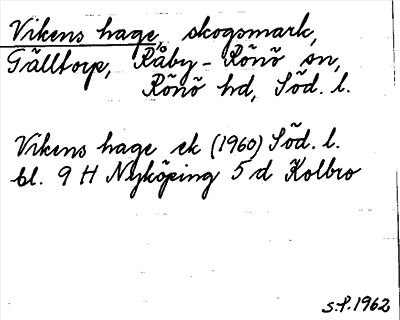 Vikens hage, skogsmark,
Tälltorp, Råby-Rönö sn,
Rönö hd, Söd. l.
Vikens hage ek (1960) Söd. l.
bl. 9 H Nyköping 5 d Kolbro
S.P. 1962